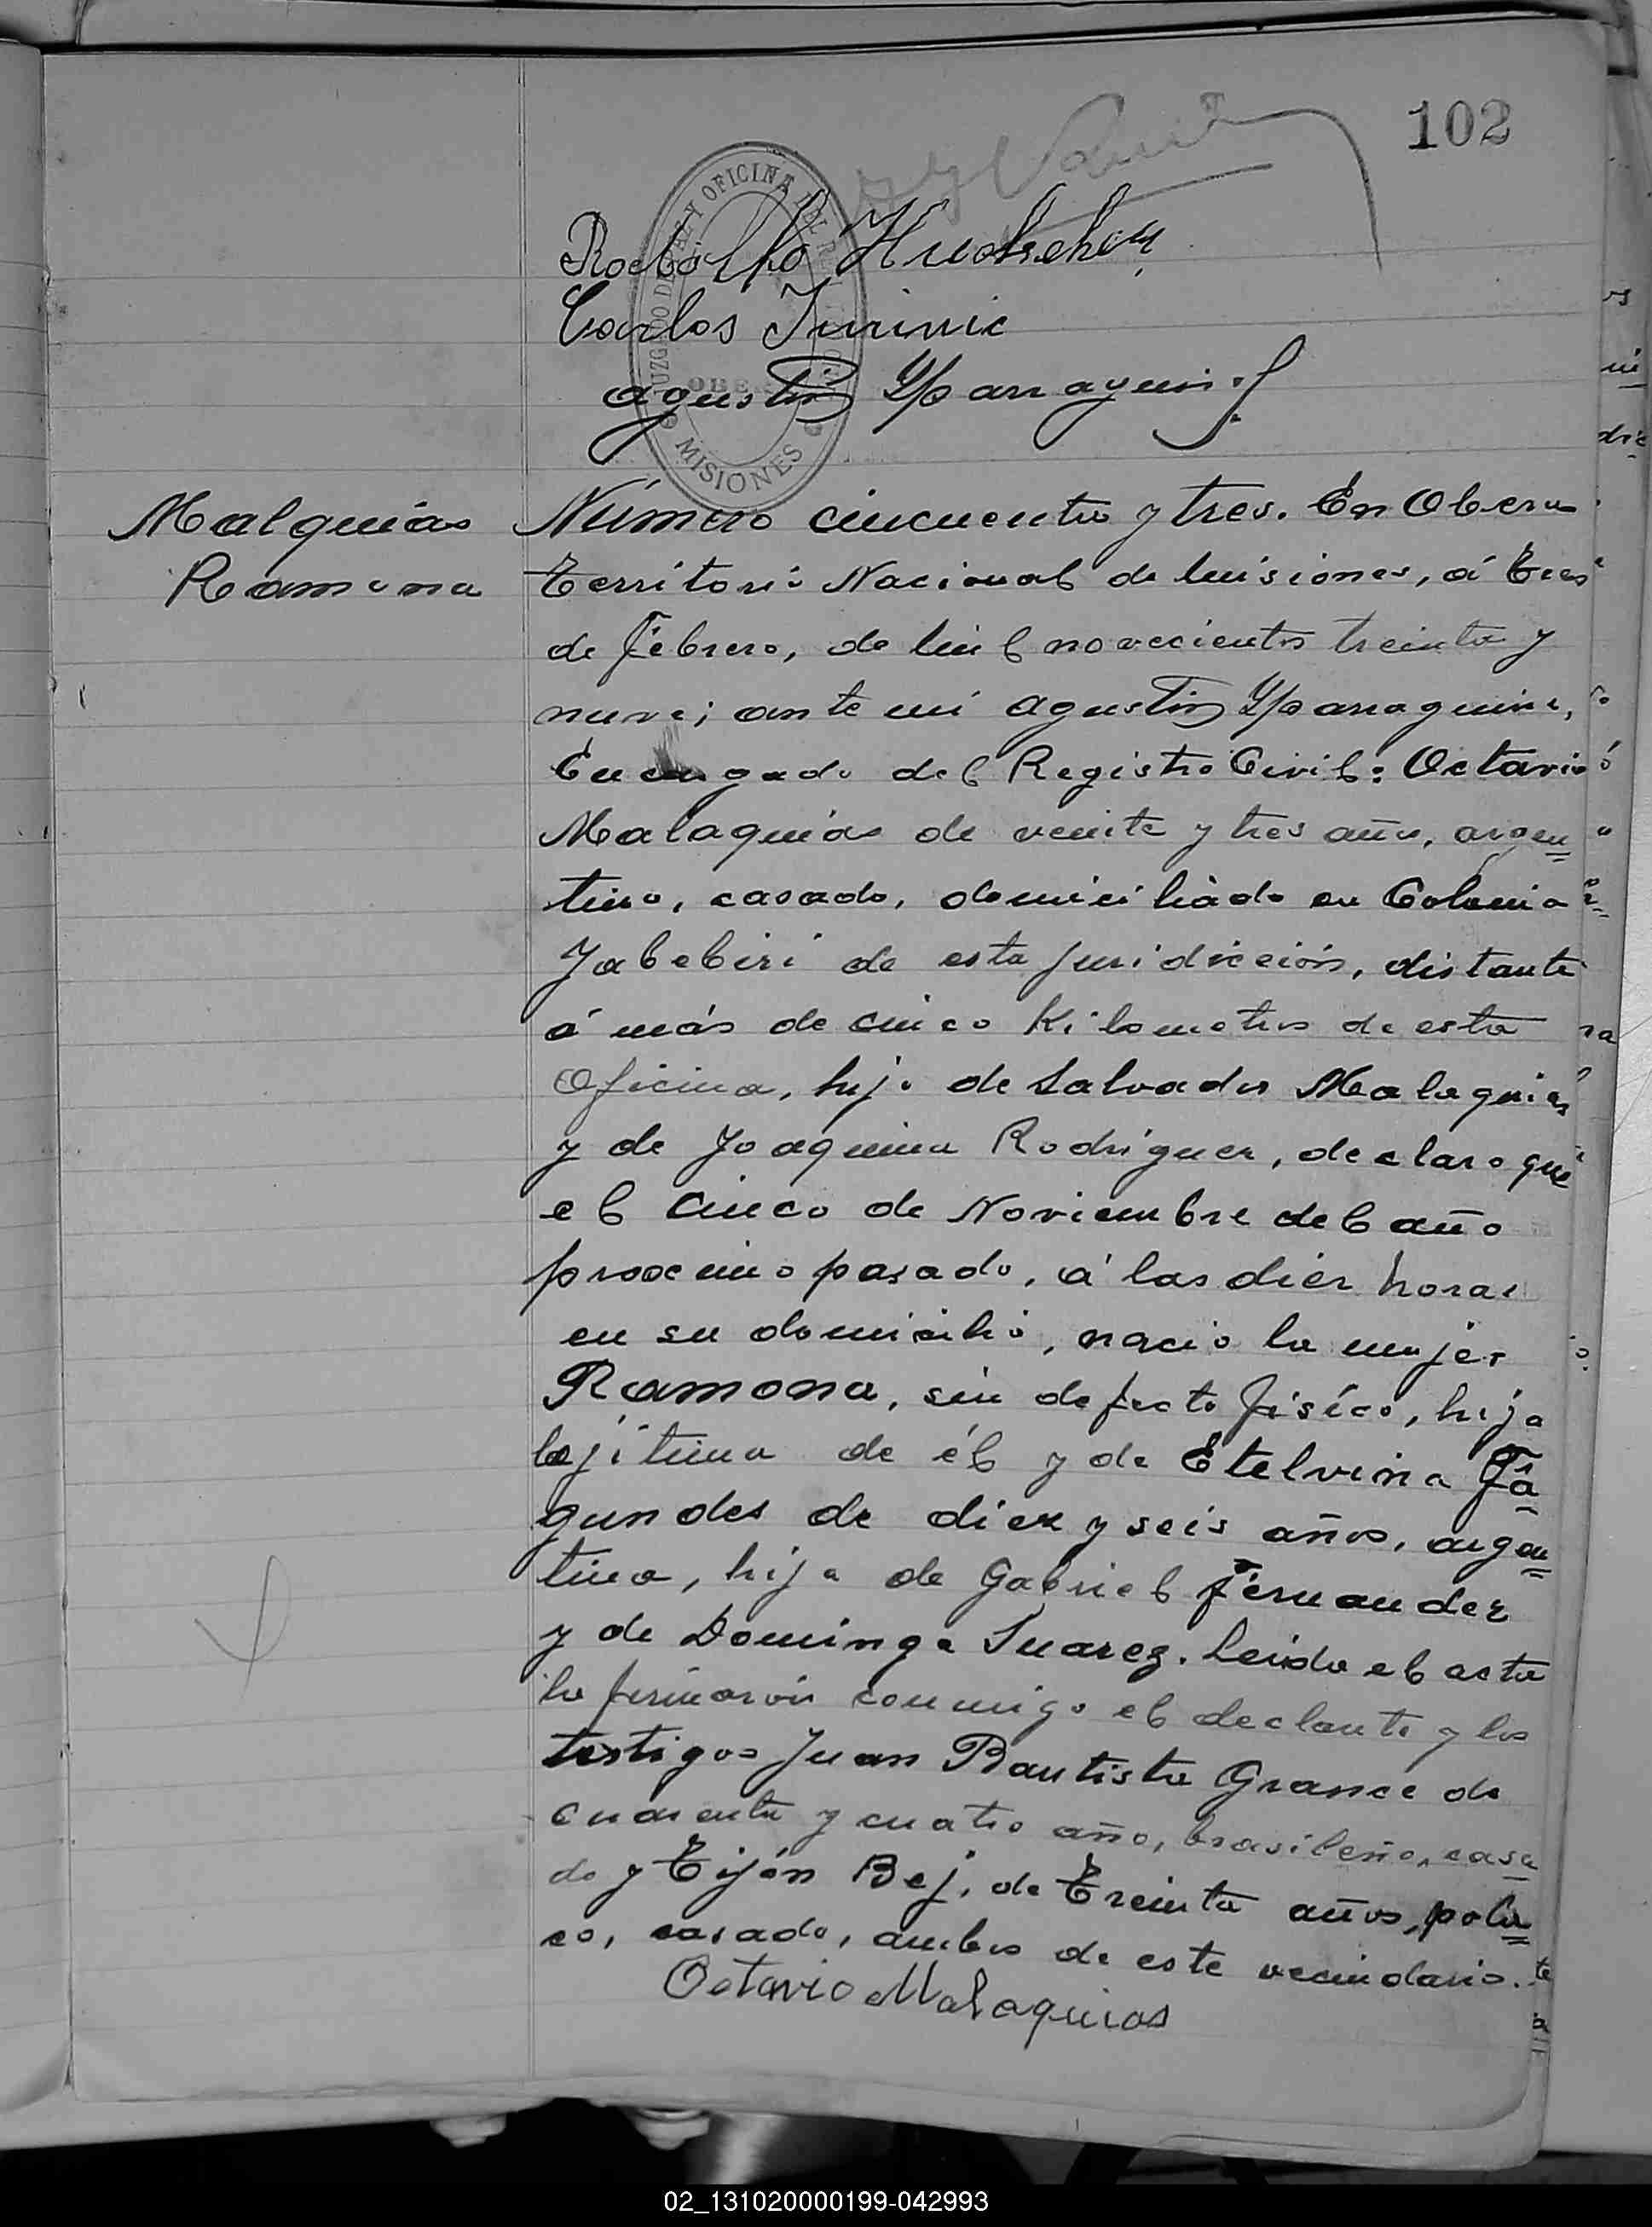 102
JUZGADO DE PAZ Y OFICINA DEL R
OBERA
MISIONES
Carlos Jurinic
Agustin Yparraguirre
Malquias
Ramona
Número cincuenta y tres. En Obera
Território Nacional de Misiones, á tres
de Febrero, de mil novecientos treinta y
nueve; ante mi Agustin Yparraguirre,
Encargado del Registro Civil: Octavio
Malaquias de veinte y tres años, argen=
tino, casado, domiciliado en Colonia
Yabebiri de esta juridicción, distante
á más de cinco Kilometros de esta
Oficina, hijo de Salvador Malaquias
y de Joaquina Rodriguez, declaro que
el cinco de Noviembre del año
proximo pasado, á las diez horas
en su domicilio, nacio la mujer
Ramona, sin defecto físico, hija
lejitima de él y de Etelvina Fa=
gundes de diez y seis años, argen=
tina, hija de Gabriel Fernandez
y de Dominga Suarez. Leida el acta
la firmarón conmigo el declante y los
testigos Juan Bautista Grance de
cuarenta y cuatro año, brasileño, casa
do y Tijón Bej, de Treinta años, pola=
co, casado, ambos de este vecindario.
Octavio Malaquias
02_131020000199-042993